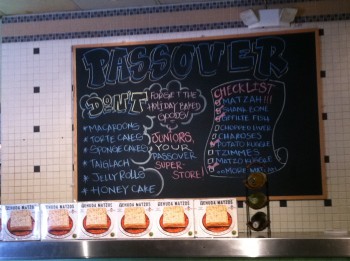 PASSOVER
DON'T
FORGET THE
HOLIDAY BAKED
GOODS!
MACAROONS
TORTE CAKES
SPONGE CAKES
TAIGLACH
JELLY ROLLS
HONEY CAKE
JUNIORS,
YOUR
PASSOVER
SUPER-
STORE!!
CHECKLIST
MATZAH!!!
SHANK BONE
GEFILTE FISH
CHOPPED LIVER
CHAROSES
POTATO KUGEL
TZIMMES
MATZO KUGEL
MORE MATZAH
YEHUDA MATZOS
YEHUDA MATZOS
YEHUDA MATZOS
YEHUDA MATZOS
YEHUDA MATZOS
YEHUDA MATZOS